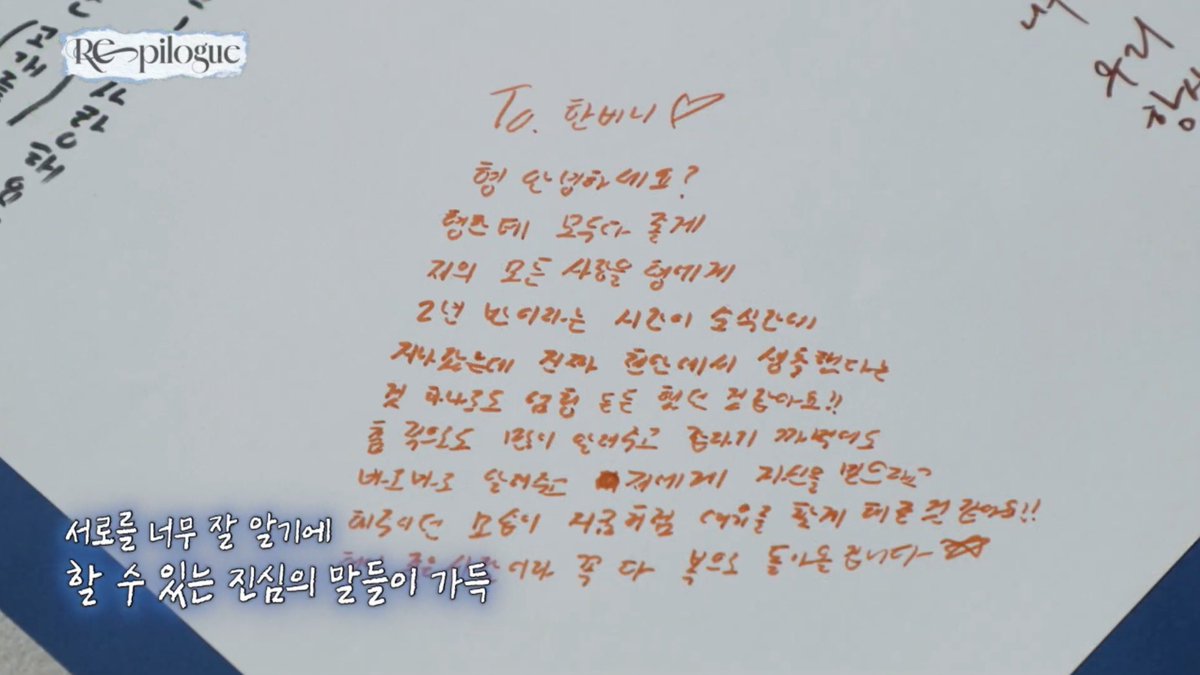 RE-pilogue
To. 한비니 ♡
형 안녕하세요?
모두다 줄게
저의 모든 사랑을 형에게
2년 반이라는 시간이 순식간에
지나갔는데 진짜
것 하나로도 엄청 든든 했던 것 같아요!!
춤 쪽으로도 많이 알려주고 까먹어도
바로바로 알려주고 저에게 자신을 믿으라고
모습이 지금처럼 해준 것 같아요!!
꼭 다 복으로 돌아올 겁니다
우리
서로를 너무 잘 알기에
할 수 있는 진심의 말들이 가득